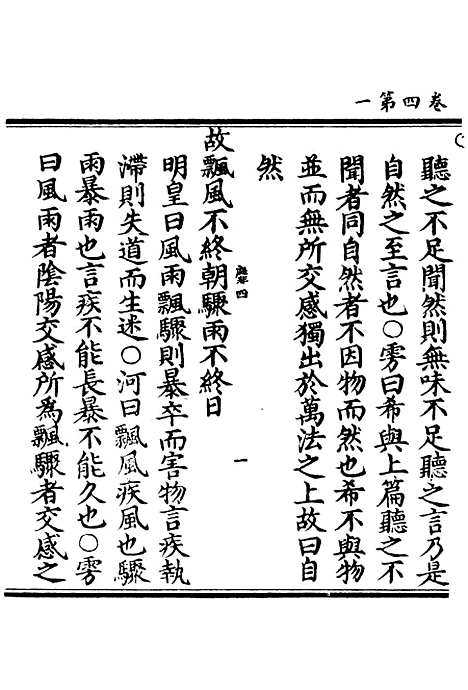 卷四第一
聽之不足聞然則無味不足聽之言乃是
自然之至言也〇雱曰希與上篇聽之不
聞者同自然者不因物而然也希不與物
並而無所交感獨出於萬法之上故曰自
然
四
一
故飄風不終朝驟雨不終日
明皇曰風雨飄驟則暴卒而害物言疾執
滯則失道而生迷〇河曰飄風疾風也驟
雨暴雨也言疾不能長暴不能久也〇雱
曰風雨者陰陽交感所為飄驟者交感之